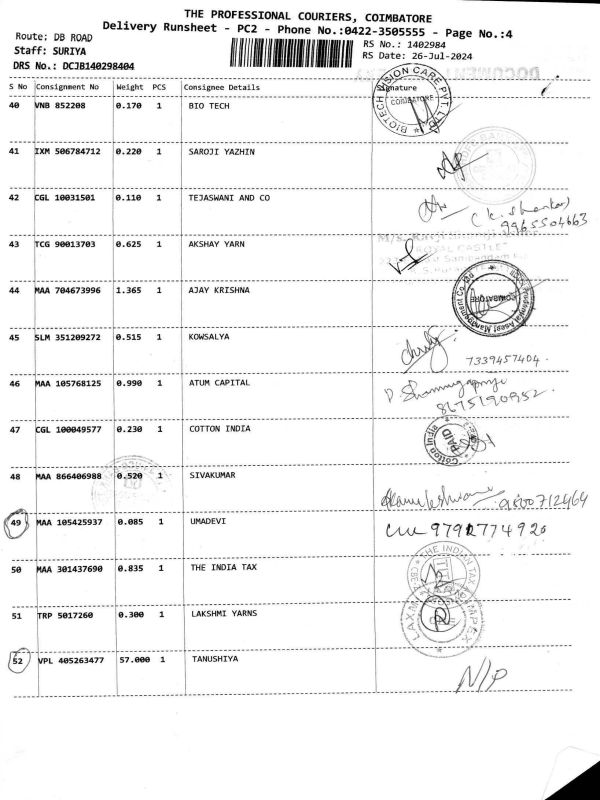 THE PROFESSIONAL COURIERS, COIMBATORE
Delivery Runsheet - PC2 - Phone No.:0422-3505555 - Page No.:4
Route: DB ROAD
RS No.: 1402984
Staff: SURIYA
RS Date: 26-Jul-2024
DRS No.: DCJB140298404
S No Consignment No Weight PCS Consignee Details Signature
40 VNB 852208 0.170 1 BIO TECH
BIOTECH VISION CARE PVT. LTD
COIMBATORE
41 IXM 506784712 0.220 1 SAROJI YAZHIN
42 CGL 10031501 0.110 1 TEJASWANI AND CO
(K. Shankar)
9965504663
43 TCG 90013703 0.625 1 AKSHAY YARN
"ROYAL CASTLE"
44 MAA 704673996 1.365 1 AJAY KRISHNA
Prudential Asset Management Co. Ltd
COIMBATORE
45 SLM 351209272 0.515 1 KOWSALYA
7339457404.
46 MAA 105768125 0.990 1 ATUM CAPITAL
8675190952.
47 CGL 100049577 0.230 1 COTTON INDIA
Cotton India
PAID
48 MAA 866406988 0.520 1 SIVAKUMAR
9500712464
49 MAA 105425937 0.085 1 UMADEVI
9791774920
50 MAA 301437690 0.835 1 THE INDIA TAX
THE INDIAN TAX
51 TRP 5017260 0.300 1 LAKSHMI YARNS
52 VPL 405263477 57.000 1 TANUSHIYA
N/P